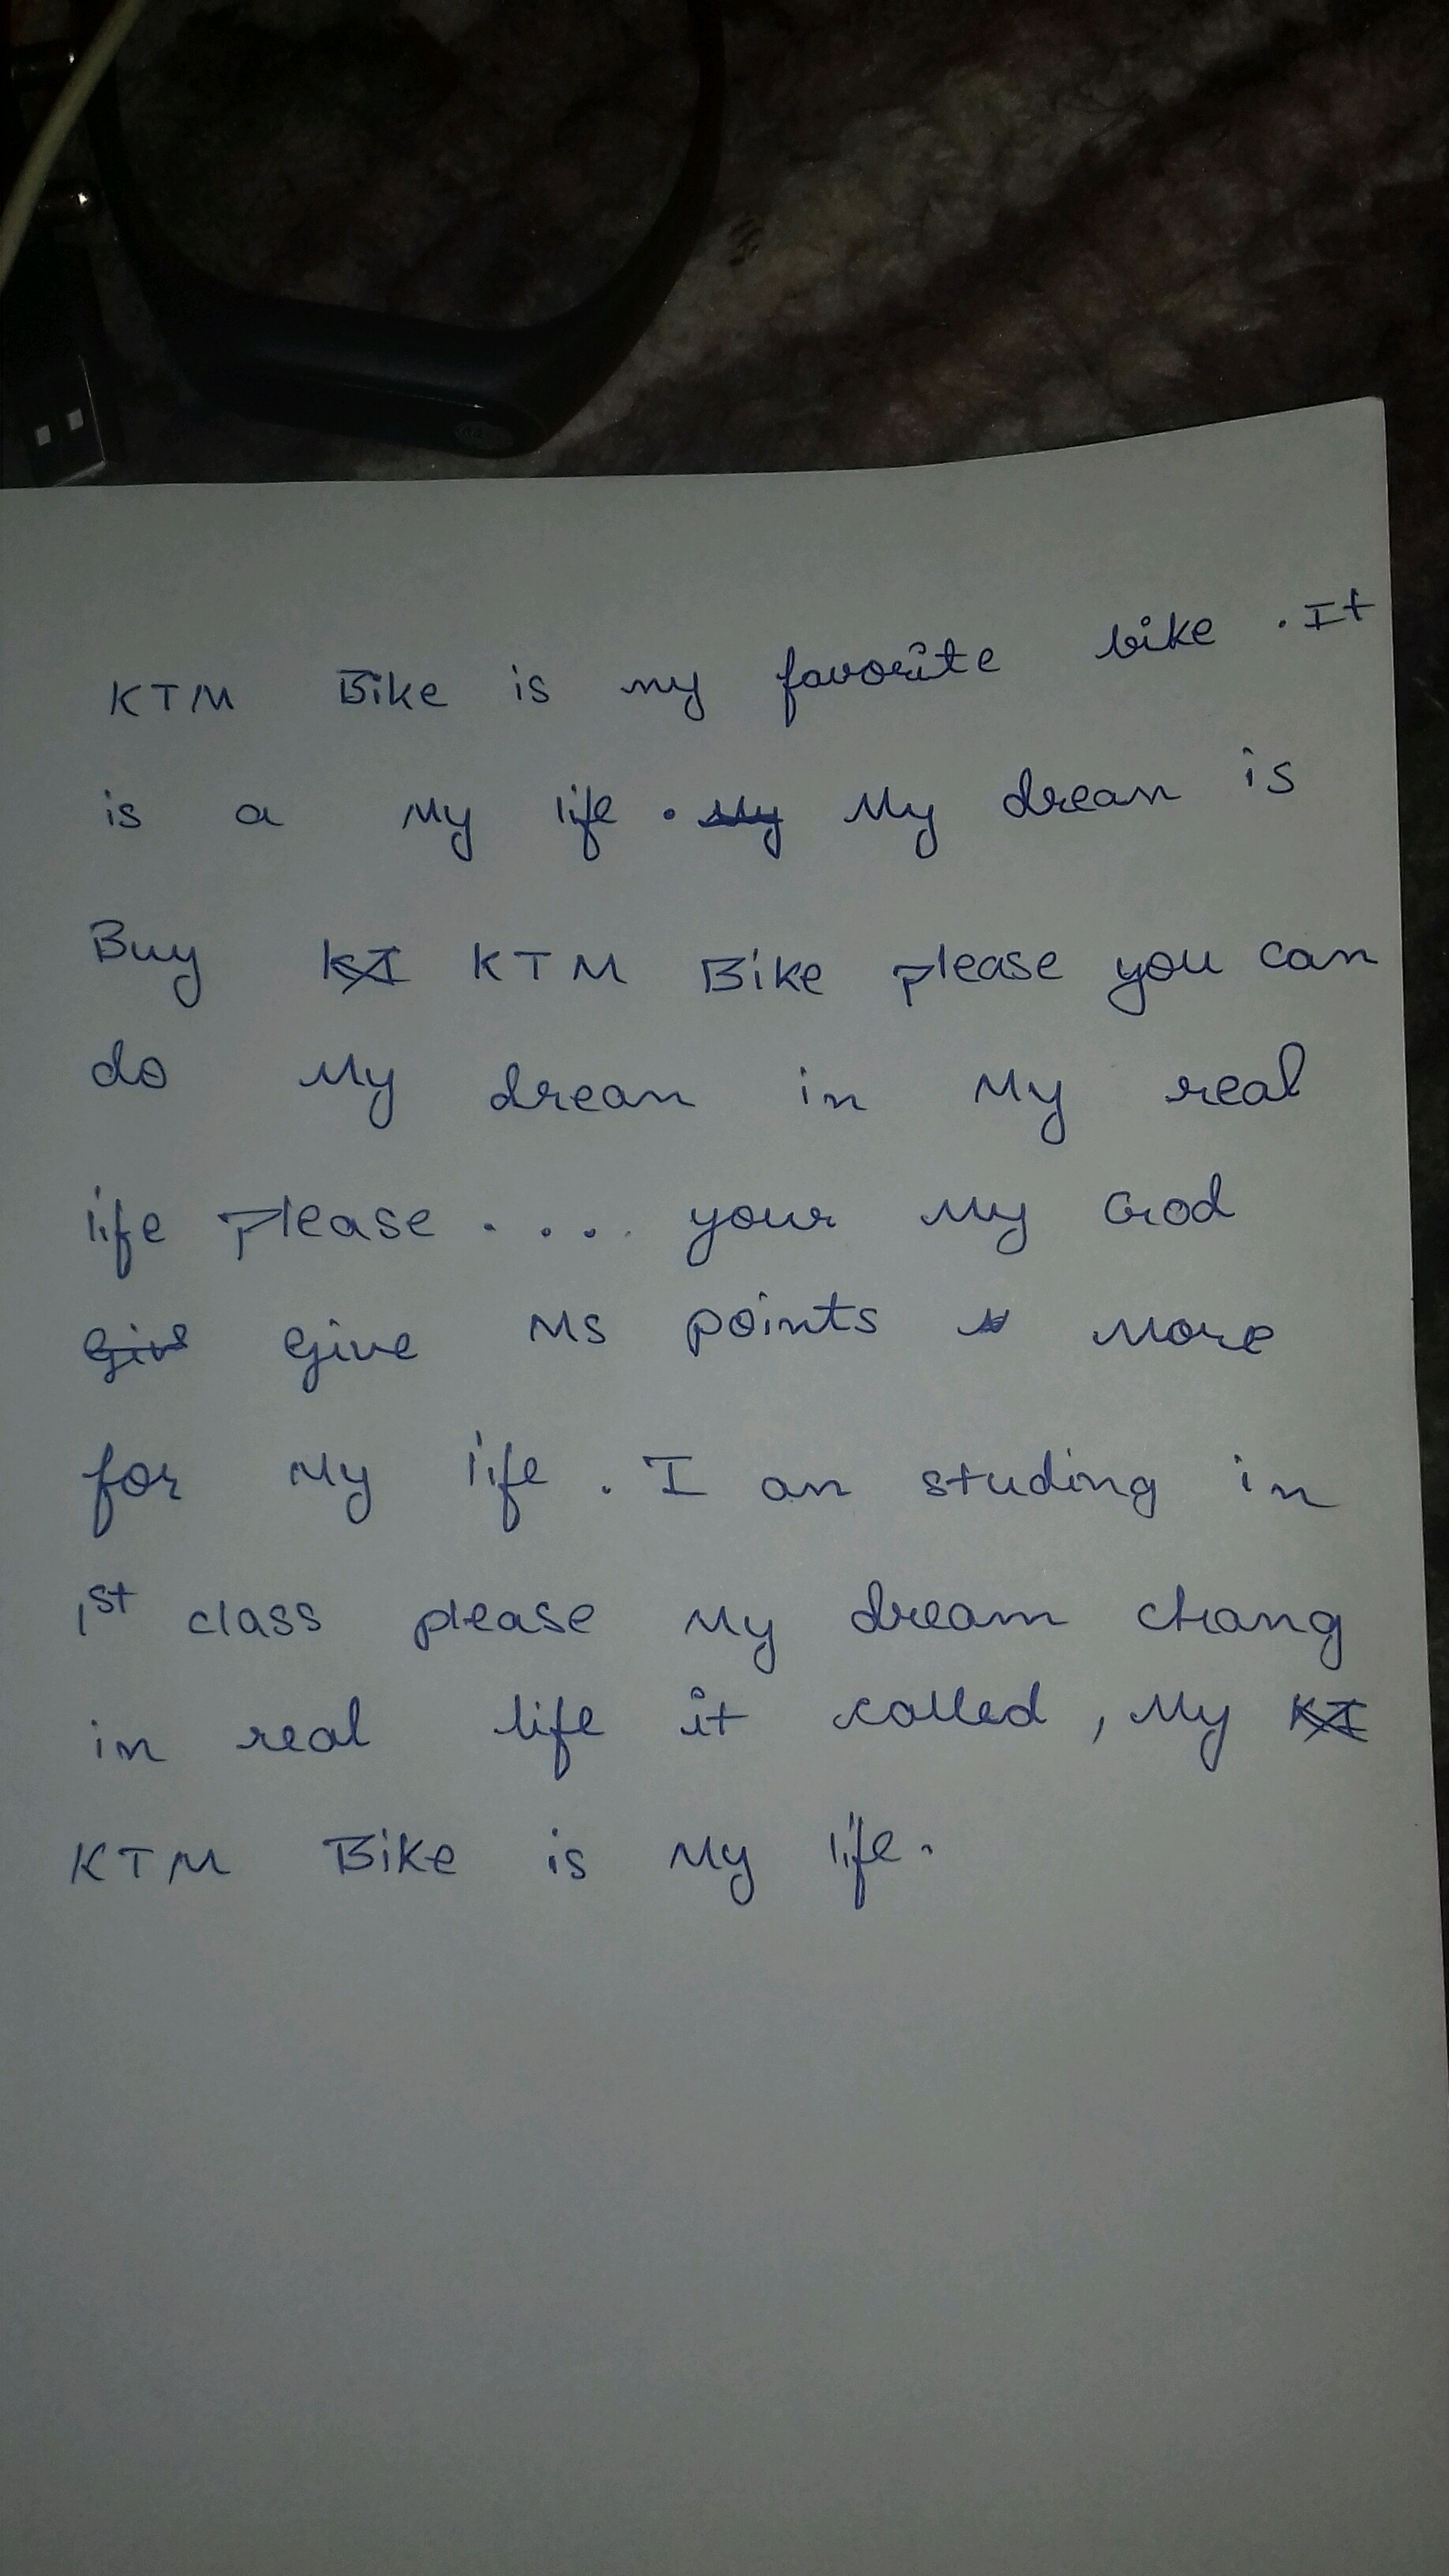 KTM Bike is my favorite bike . It
is a My life . My My dream is
Buy KTM Bike please you can
do My drean in My real
life please . . . . your My God
give Ms points More
for My life . I an studing in
1st class please My dream chang
in real life it called , My
KTM Bike is My life .